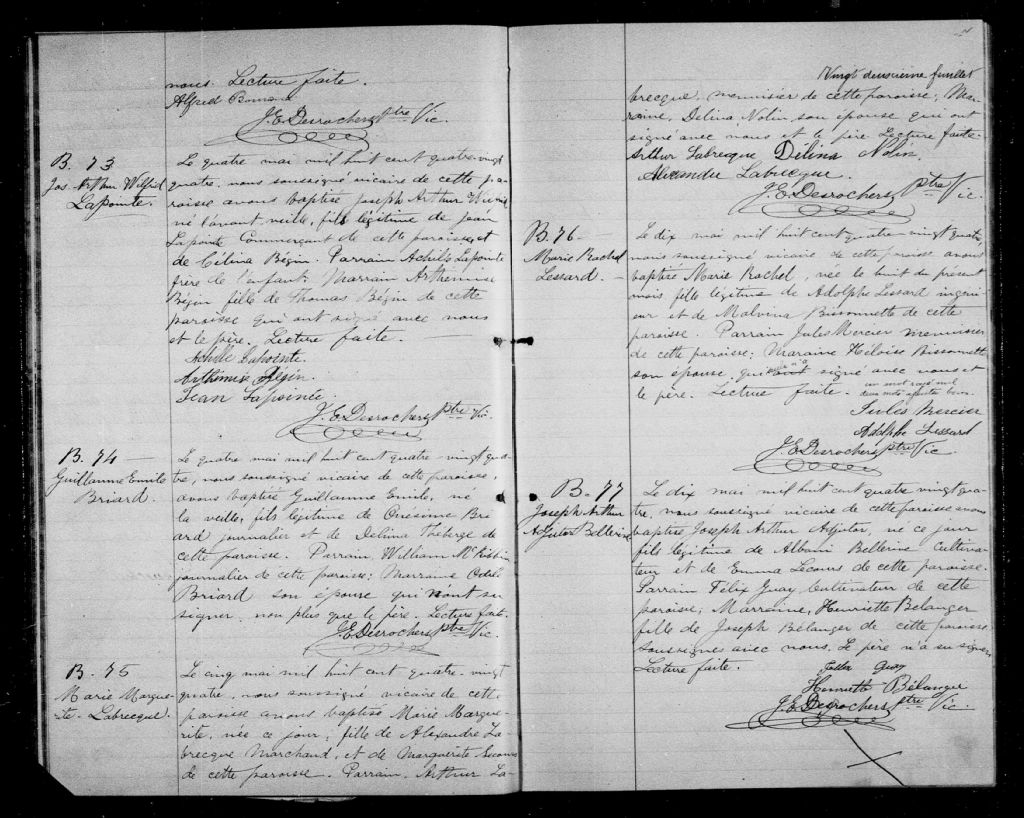 nous. Lecture faite.
Alfred
J.E.Desrochers ptre Vic.
B. 73
Jos. Arthur Wilfrid
LaPointe.
Le quatre mai mil huit cent quatre-vingt
quatre, nous soussigné vicaire de cette pa-
roisse avons baptisé Joseph Arthur Wilfrid
né l'avant veille, fils légitime de Jean
Lapointe Commerçant de cette paroisse, et
de Célina Bégin. Parrain Achille Lapointe
frère de l'enfant; Marraine Arthémise
Bégin fille de Thomas Bégin de cette
paroisse qui ont signé avec nous
et le père. Lecture faite.
Achille Lapointe.
Arthémise Begin.
Jean Lapointe
J.E.Desrochers ptre Vic.
B. 74
Guillaume Emile
Briard.
Le quatre mai mil huit cent quatre-vingt qua-
tre, nous soussigné vicaire de cette paroisse,
avons baptisé Guillaume Emile, né
la veille, fils légitime de Onésime Bri-
ard journalier et de Delina Théberge de
cette paroisse. Parrain, William
journalier de cette paroisse; Marraine Odile
Briard son épouse qui n'ont su
signer non plus que le père. Lecture faite.
J.E.Desrochers ptre Vic.
B. 75
Marie Margue-
rite Labrecque.
Le cinq mai mil huit cent quatre-vingt
quatre, nous soussigné vicaire de cette
paroisse avons baptisé Marie Margue-
rite, née ce jour; fille de Alexandre La-
brecque Marchand, et de Marguerite Lecours
de cette paroisse. Parrain, Arthur La-
Vingt deuxième feuillet
brecque, menuisier de cette paroisse; Mar-
raine, Delina Nolin son épouse qui ont
signé avec nous et le père Lecture faite.
Arthur Labrecque Délina Nolin
Alexandre Labrecque.
J.E.Desrochers ptre Vic.
B. 76
Marie Rachel
Lessard.
Le dix mai mil huit cent quatre-vingt quatre
nous soussigné vicaire de cette paroisse avons
baptisé Marie Rachel, née le huit du présent
mois fille légitime de Adolphe Lessard ingéni-
eur et de Malvina Bissonnette de cette
paroisse. Parrain Jules Mercier menuisier
de cette paroisse; Maraine Héloïse Bissonnette
son épouse, qui signé avec nous et
le père. Lecture faite. un mot rayé nul
deux mots ajoutés bons.
Jules Mercier
Adolphe Lessard
J.E.Desrochers ptre Vic.
B. 77
Joseph Arthur
Adjutor Bellerive
Le dix mai mil huit cent quatre vingt qua-
tre, nous soussigné vicaire de cette paroisse avons
baptisé Joseph Arthur Adjutor, né ce jour
fils légitime de Albani Bellerive cultiva-
teur et de Emma Lecours de cette paroisse.
Parrain Félix Guay Cultivateur de cette
paroisse; Marraine, Henriette Bélanger
fille de Joseph Bélanger de cette paroisse
soussignés avec nous. Le père n'a su signer
Lecture faite.
Guay
Henriette Bélanger
J.E.Desrochers ptre Vic.